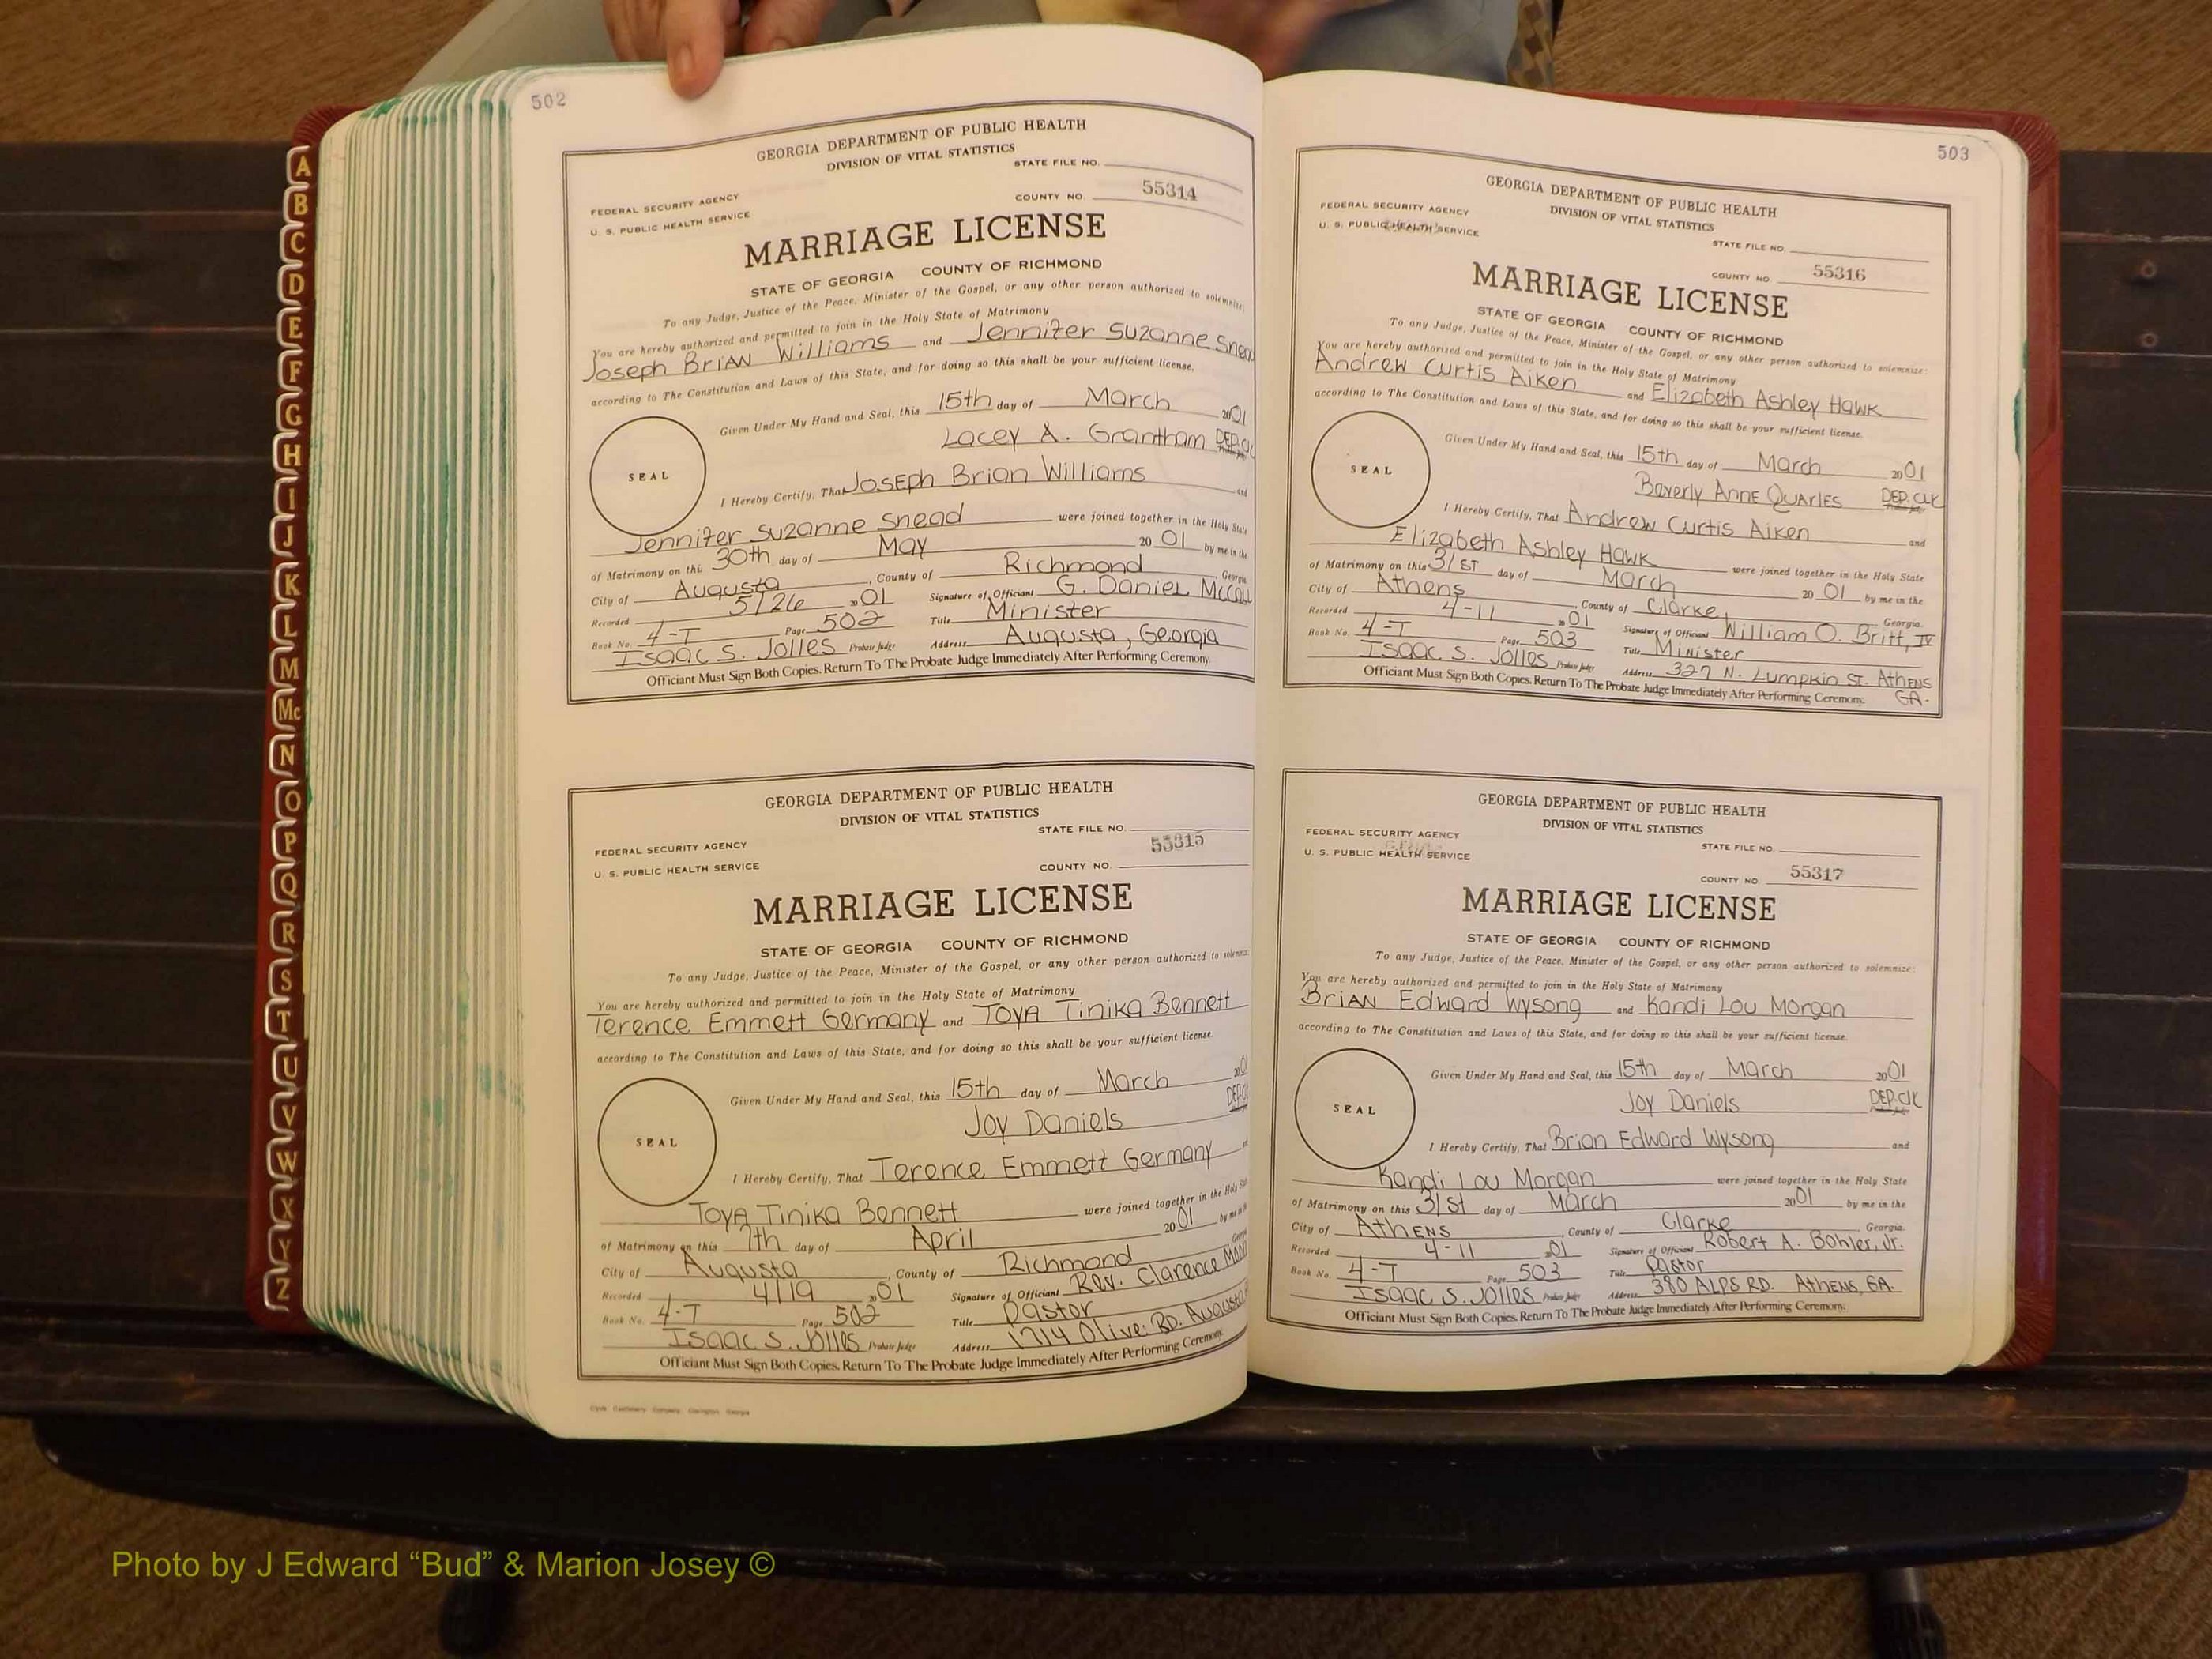 A
B
C
D
E
F
G
H
I
J
K
L
M
Mc
N
O
P
Q
R
S
T
U
V
W
X
Y
Z
502
GEORGIA DEPARTMENT OF PUBLIC HEALTH
DIVISION OF VITAL STATISTICS
STATE FILE NO.
FEDERAL SECURITY AGENCY
COUNTY NO. 55314
U. S. PUBLIC HEALTH SERVICE
MARRIAGE LICENSE
STATE OF GEORGIA COUNTY OF RICHMOND
To any Judge, Justice of the Peace, Minister of the Gospel, or any other person authorized to solemnize:
You are hereby authorized and permitted to join in the Holy State of Matrimony
Joseph BriAN Williams and Jennifer Suzanne Snead
according to The Constitution and Laws of this State, and for doing so this shall be your sufficient license.
Given Under My Hand and Seal, this 15th day of March 2001
Lacey A. Grantham DEP.Clk
SEAL
I Hereby Certify, That JosEph Brian Williams and
Jennifer Suzanne Snead were joined together in the Holy State
of Matrimony on this 30th day of May 20 01 by me in the
City of Augusta, County of Richmond Georgia
Recorded 5/26 2001 Signature of Officiant G. Daniel McCall
Book No. 4-T Page 502 Title Minister
Isaac S. Jolles Probate Judge Address Augusta, Georgia
Officiant Must Sign Both Copies. Return To The Probate Judge Immediately After Performing Ceremony.
GEORGIA DEPARTMENT OF PUBLIC HEALTH
DIVISION OF VITAL STATISTICS
STATE FILE NO.
55315
FEDERAL SECURITY AGENCY
COUNTY NO.
U. S. PUBLIC HEALTH SERVICE
MARRIAGE LICENSE
STATE OF GEORGIA COUNTY OF RICHMOND
To any Judge, Justice of the Peace, Minister of the Gospel, or any other person authorized to solemnize:
You are hereby authorized and permitted to join in the Holy State of Matrimony
Terence Emmett Germany and ToyA Tinika Bennett
according to The Constitution and Laws of this State, and for doing so this shall be your sufficient license.
Given Under My Hand and Seal, this 15th day of March 2001
Joy Daniels
SEAL
I Hereby Certify, That Terence Emmett Germany and
ToyA Tinika Bennett were joined together in the Holy State
of Matrimony on this 7th day of April 20 01 by me in the
City of Augusta, County of Richmond Georgia
Recorded 4/19 2001 Signature of Officiant Rev. Clarence Moore
Book No. 4-T Page 502 Title Pastor
Isaac S. Jolles Probate Judge Address 1714 Olive RD. Augusta
Officiant Must Sign Both Copies. Return To The Probate Judge Immediately After Performing Ceremony.
503
GEORGIA DEPARTMENT OF PUBLIC HEALTH
DIVISION OF VITAL STATISTICS
FEDERAL SECURITY AGENCY
STATE FILE NO.
U. S. PUBLIC HEALTH SERVICE
COUNTY NO. 55316
MARRIAGE LICENSE
STATE OF GEORGIA COUNTY OF RICHMOND
To any Judge, Justice of the Peace, Minister of the Gospel, or any other person authorized to solemnize:
You are hereby authorized and permitted to join in the Holy State of Matrimony
Andrew Curtis Aiken and Elizabeth Ashley Hawk
according to The Constitution and Laws of this State, and for doing so this shall be your sufficient license.
Given Under My Hand and Seal, this 15th day of March 2001
Beverly Anne Quarles DEP. CLK
SEAL
I Hereby Certify, That Andrew Curtis Aiken and
Elizabeth Ashley Hawk were joined together in the Holy State
of Matrimony on this 31st day of March 20 01 by me in the
City of Athens, County of Clarke, Georgia.
Recorded 4-11 2001 Signature of Officiant William O. Britt, IV
Book No. 4-T Page 503 Title Minister
Isaac S. Jolles Probate Judge Address 327 N. Lumpkin St. AthENS GA.
Officiant Must Sign Both Copies. Return To The Probate Judge Immediately After Performing Ceremony.
GEORGIA DEPARTMENT OF PUBLIC HEALTH
DIVISION OF VITAL STATISTICS
FEDERAL SECURITY AGENCY
STATE FILE NO.
U. S. PUBLIC HEALTH SERVICE
COUNTY NO. 55317
MARRIAGE LICENSE
STATE OF GEORGIA COUNTY OF RICHMOND
To any Judge, Justice of the Peace, Minister of the Gospel, or any other person authorized to solemnize:
You are hereby authorized and permitted to join in the Holy State of Matrimony
BriAN Edward Wysong and Kandi Lou Morgan
according to The Constitution and Laws of this State, and for doing so this shall be your sufficient license.
Given Under My Hand and Seal, this 15th day of March 2001
Joy Daniels DEP.Clk
SEAL
I Hereby Certify, That Brian Edward Wysong and
Kandi Lou Morgan were joined together in the Holy State
of Matrimony on this 31st day of March 2001 by me in the
City of AthENS County of Clarke Georgia.
Recorded 4-11 2001 Signature of Officiant Robert A. Bohler, Jr.
Book No. 4-T Page 503 Title Pastor
Isaac S. Jolles Probate Judge Address 380 ALPS RD. AthENS, GA.
Officiant Must Sign Both Copies. Return To The Probate Judge Immediately After Performing Ceremony.
Photo by J Edward “Bud” & Marion Josey ©